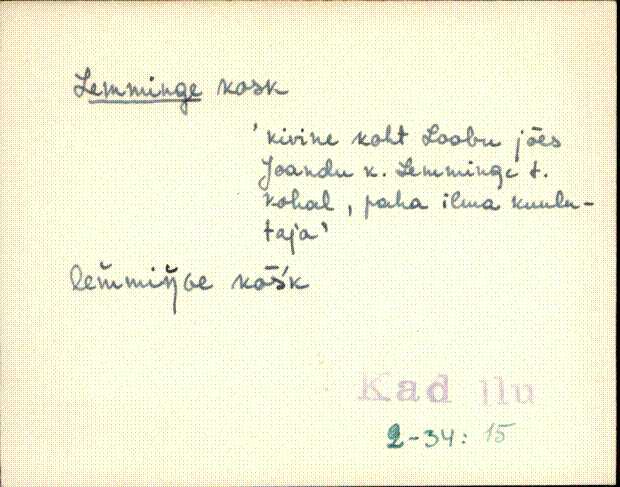 Lemminge kosk
'kivine koht Loobu jões
Joandu k. Lemminge t.
kohal, paha ilma kuulu-
taja'
lem̆miŋ̆ɢe kōśk
Kad Ilu
2-34: 15